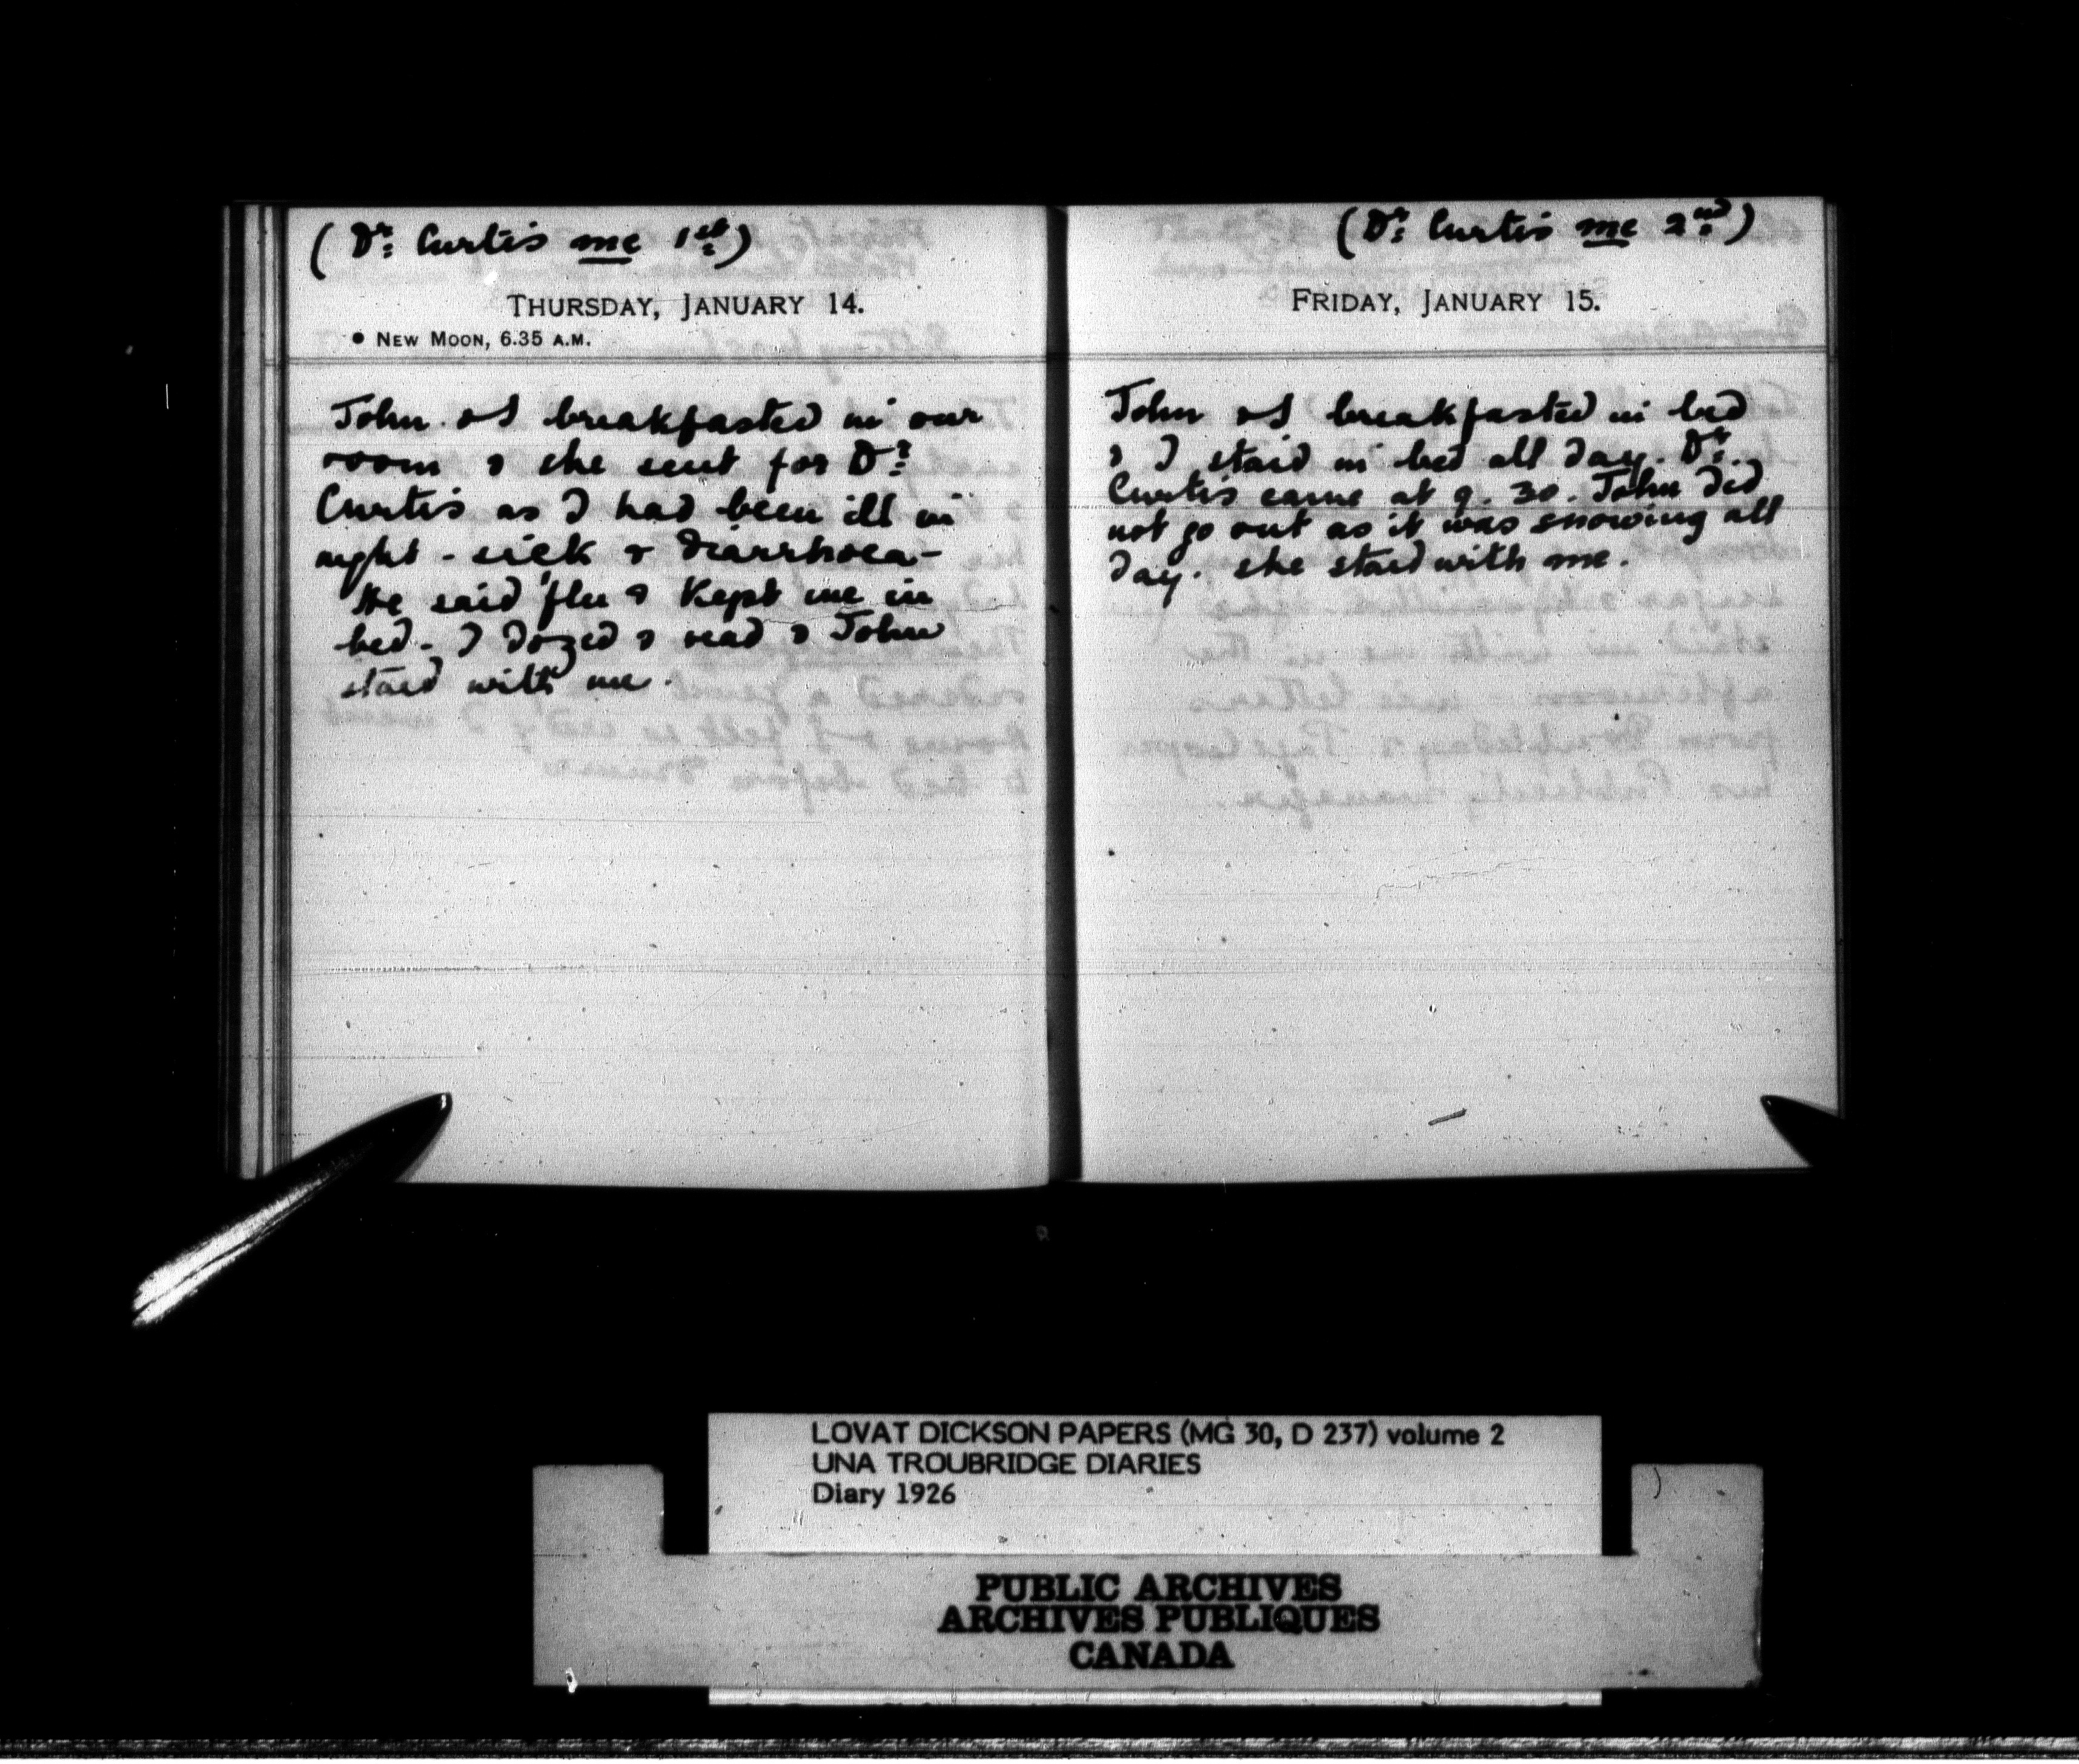 (Dr: Curtis me 1st)
THURSDAY, JANUARY 14.
● NEW MOON, 6.35 A.M.
John & I breakfasted in our
room & she sent for Dr:
Curtis as I had been ill in
night - sick & diarrhoea -
He said 'flu & kept me in
bed - I dozed & read & John
staid with me.
(Dr: Curtis me 2nd)
FRIDAY, JANUARY 15.
John & I breakfasted in bed
& I staid in bed all day. Dr:
Curtis came at 9.30. John did
not go out as it was snowing all
day. she staid with me.
LOVAT DICKSON PAPERS (MG 30, D 237) volume 2
UNA TROUBRIDGE DIARIES
Diary 1926
PUBLIC ARCHIVES
ARCHIVES PUBLIQUES
CANADA